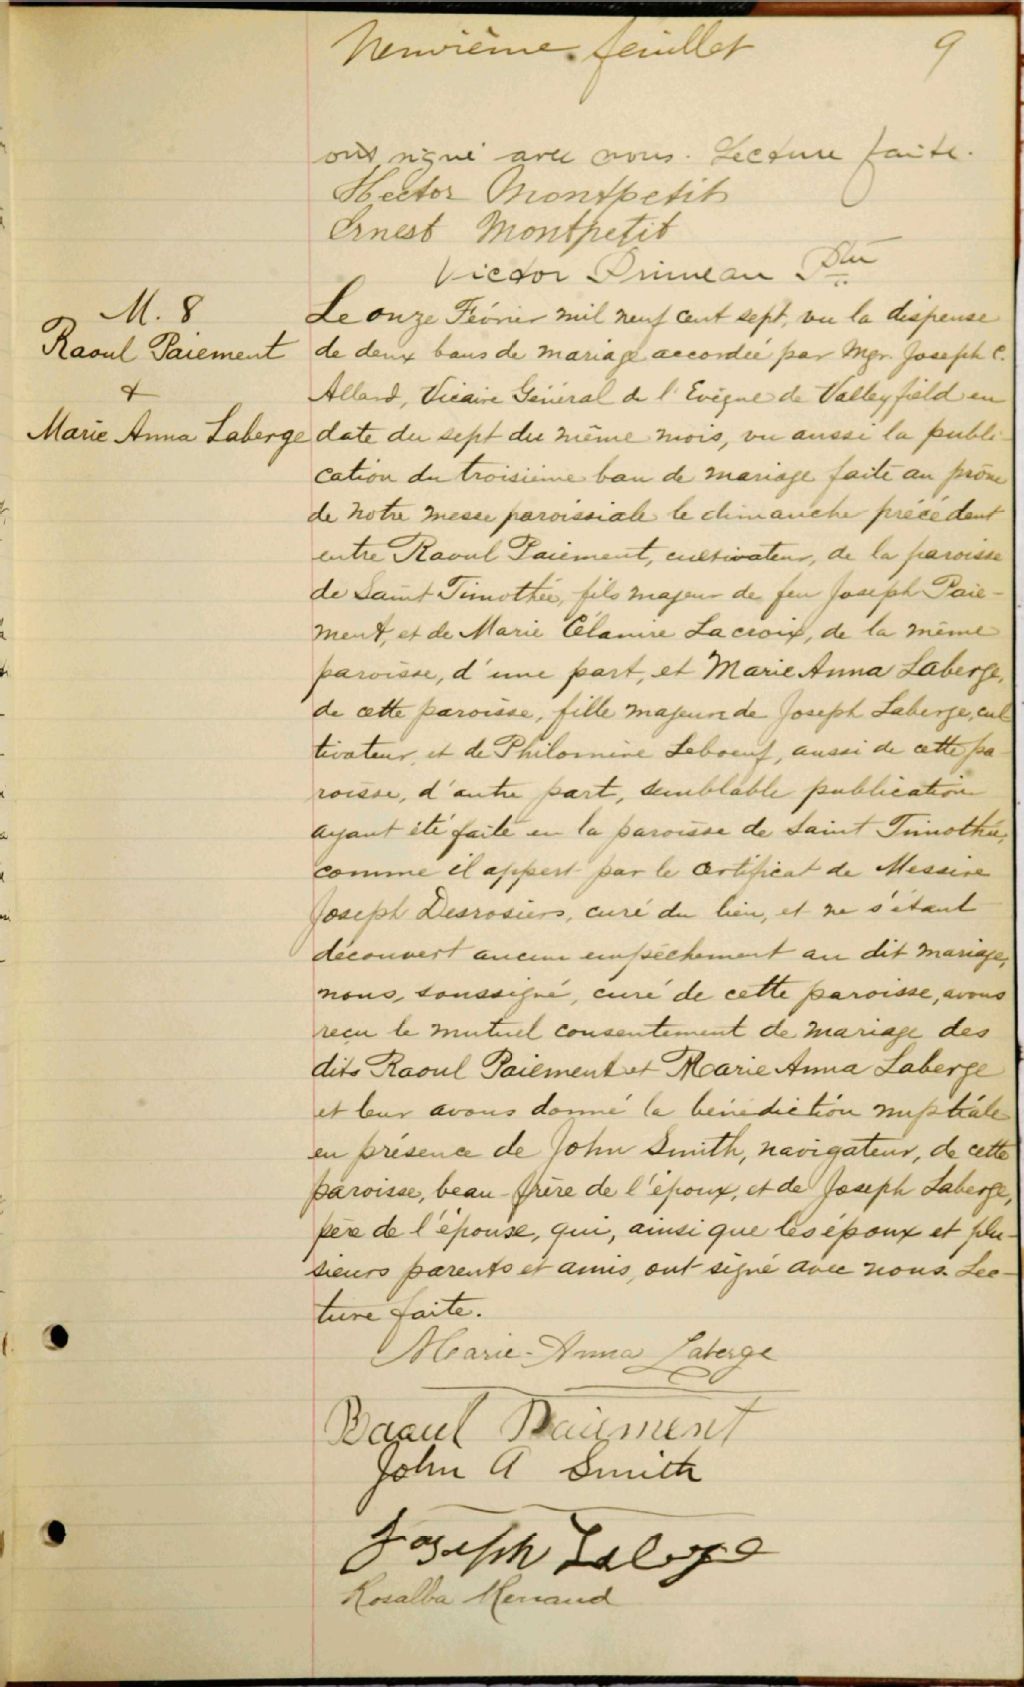 Neuvième feuillet 9
ont signé avec nous. Lecture faite.
Hector Montpetit
Ernest Montpetit
Victor Primeau Ptre
M. 8
Raoul Paiement
&
Marie Anna Laberge
Le onze Février mil neuf cent sept, vu la dispense
de deux bans de mariage accordée par Mgr. Joseph C.
Allard, Vicaire Général de l'Evêque de Valleyfield en
date du sept du même mois, vu aussi la publi-
cation du troisième ban de mariage faite au prône
de notre messe paroissiale le dimanche précédent
entre Raoul Paiement, cultivateur, de la paroisse
de Saint Timothée, fils majeur de feu Joseph Paie-
ment, et de Marie Élamire Lacroix, de la même
paroisse, d'une part, et Marie Anna Laberge,
de cette paroisse, fille majeure de Joseph Laberge, cul
tivateur, et de Philomène Leboeuf, aussi de cette pa-
roisse, d'autre part, semblable publication
ayant été faite en la paroisse de Saint Timothée,
comme il appert par le certificat de Messire
Joseph Desrosiers, curé du lieu, et ne s'étant
découvert aucun empêchement au dit mariage,
nous, soussigné, curé de cette paroisse, avons
reçu le mutuel consentement de mariage des
dits Raoul Paiement et Marie Anna Laberge
et leur avons donné la bénédiction nuptiale
en présence de John Smith, navigateur, de cette
paroisse, beau-frère de l'époux, et de Joseph Laberge,
père de l'épouse, qui, ainsi que les époux et plu-
sieurs parents et amis, ont signé avec nous. Lec-
ture faite.
Marie-Anna Laberge
Raoul Paiement
John A Smith
Joseph Laberge
Rosalba